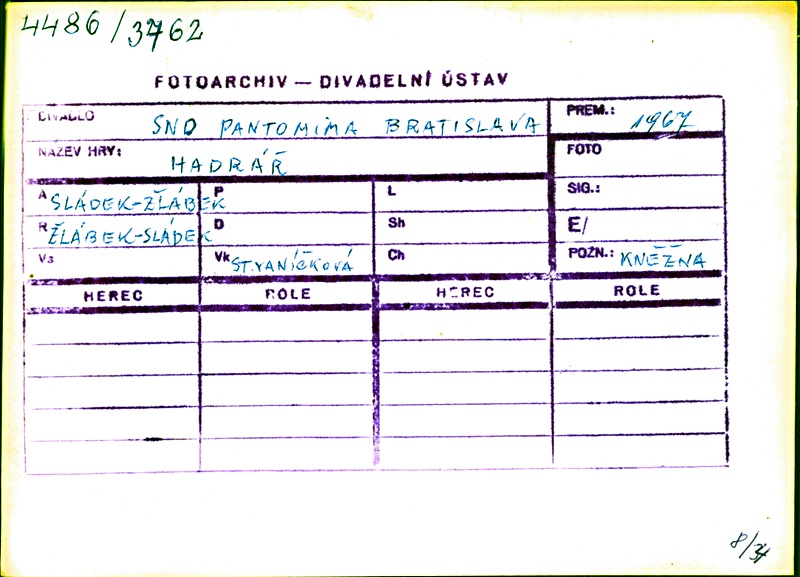 4486/3762
FOTOARCHIV — DIVADELNÍ ÚSTAV
DIVADLO SND PANTOMIMA BRATISLAVA PREM.: 1967
NÁZEV HRY: HADRÁŘ FOTO
A SLÁDEK-ŽLÁBEK P L SIG.:
R ŽLÁBEK-SLÁDEK D Sh E/
Vs Vk ST.VANÍČKOVÁ Ch POZN.: KNĚŽNA
HEREC ROLE HEREC ROLE
8/34